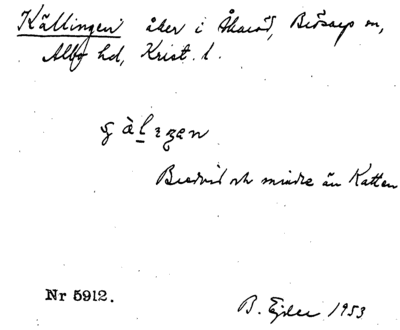 Källingen åker i Åkaröd, Brösarp sn,
Albo hd, Krist. l.
Bredvid och mindre än Katten
Nr 5912.
B. Ejder 1953